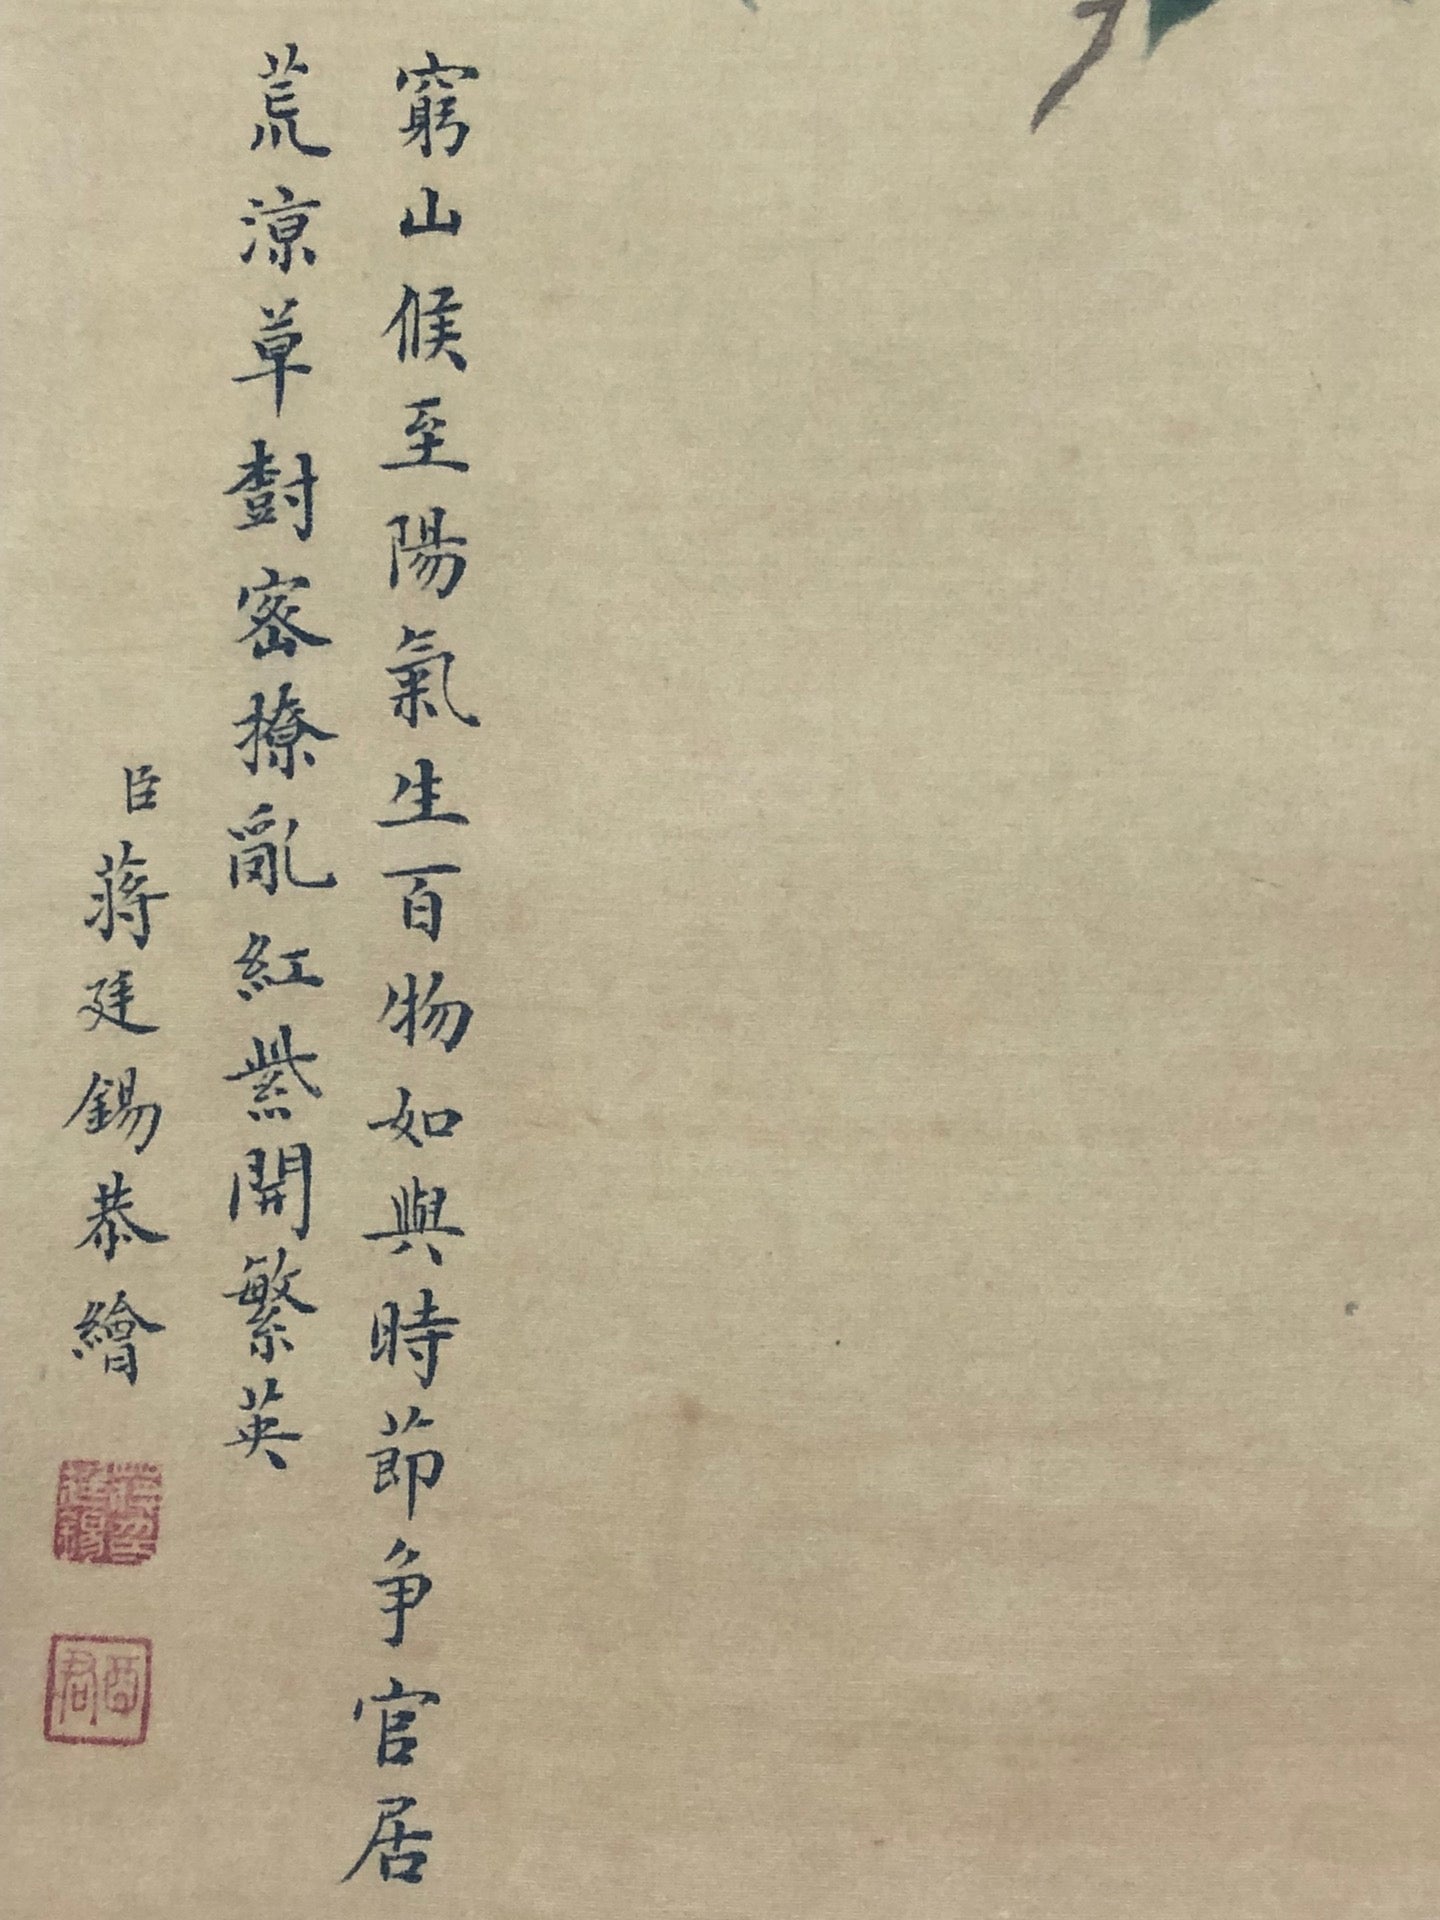 窮山候至陽氣生百物如與時節争官居
荒涼草樹密撩亂紅紫開繁英
臣蔣廷錫恭繪
臣廷錫
酉君